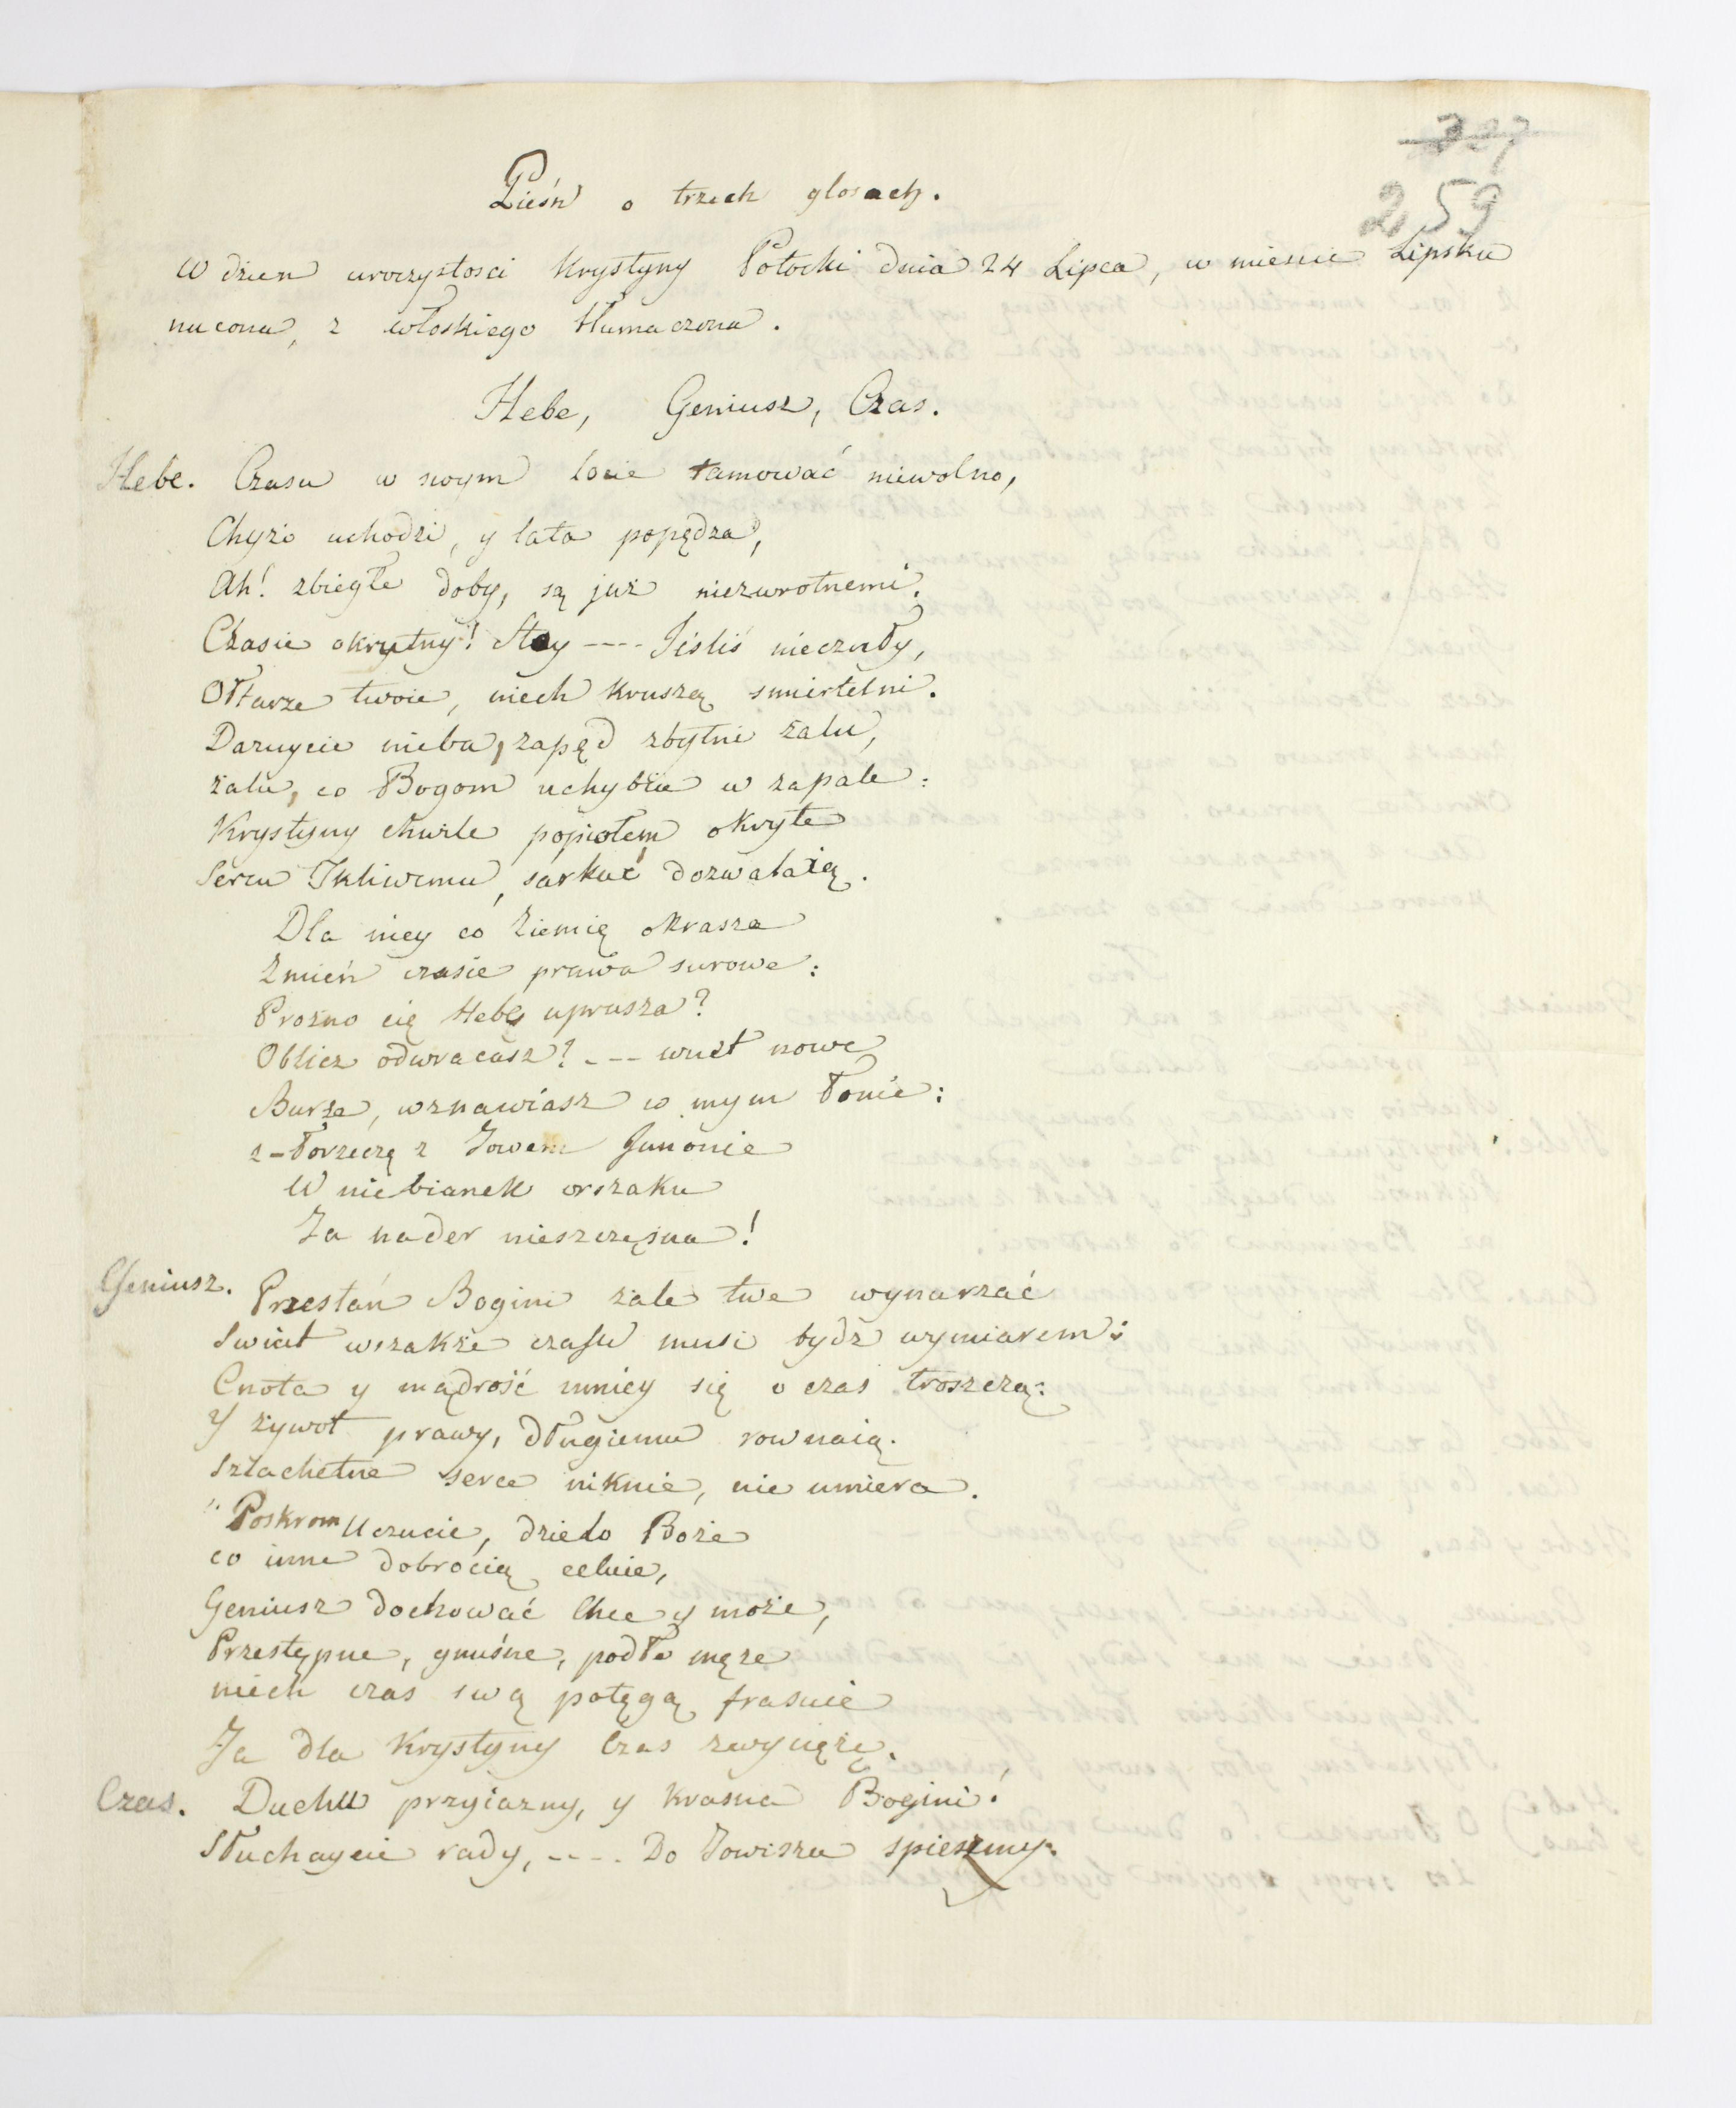 259
Pieśń o trzech glosach.
W dzien uroczystosci Krystyny Potocki dnia 24 Lipca, w miescie Lipsku
nucona, z włoskiego tłumaczona.
Hebe, Geniusz, Czas.
Hebe. Czasu w swym locie tamować niewolno,
Chyżo uchodzi, y lata popędza,
Ah! zbiegłe doby, są już niezwrotnemi.
Czasie okrutny! Stoy ---- Jésliś nieczuły,
Ołtarze twoie, niech kruszą smiertelni.
Daruycie nieba, zapęd zbytni żalu,
żalu, co Bogom uchybia w zapale:
Krystyny chwile popiołem okryte
Sercu Tkliwemu, sarkać dozwalaią.
Dla niey co Ziemię okrasza
Zmień czasie prawa surowe:
Prożno cię Hebe uprasza?
Oblicz odwracasz? --- wnet nowe
Burze, wznawiasz w mym łonie:
złorzeczę z Jowem Junonie
W niebianek orszaku
Ja nader nieszczęsna!
Geniusz. Przestań Bogini żale twe wynarzać
Swiat wszakże czasu musi bydz wymiarem:
Cnota y mądrość mniey się o czas troszczą:
Y żywot prawy, długiemu rownaią.
Szlachetne serce niknie, nie umiera.
"Poskrom Uczucie, dzieło Boże
co inne dobrocią celuie,
Geniusz dochować Chce y może,
Przestępne, gnuśne, podłe męże
niech czas swą potęgą frasuie
Ja dla Krystyny Czas zwyciężę.
Czas. Duchu przyiazny, y krasna Bogini!
Słuchaycie rady, ---- Do Jowisza spieszmy.